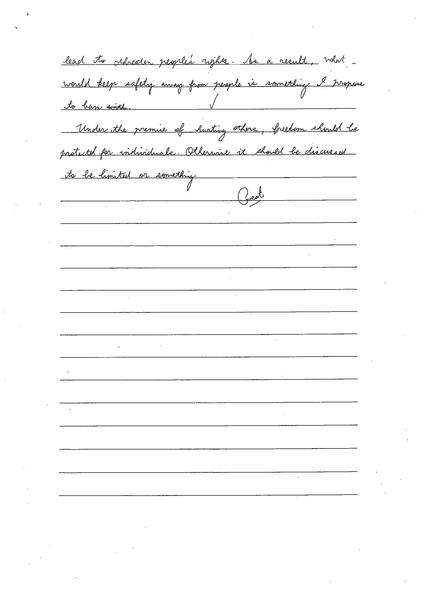 lead to threaten people's rights. As a result, what
would keep safety away from people is something I propose
to ban
Under the premise of hurting others, freedom should be
protected for individuals. Otherwise it should be discussed
to be limited or something